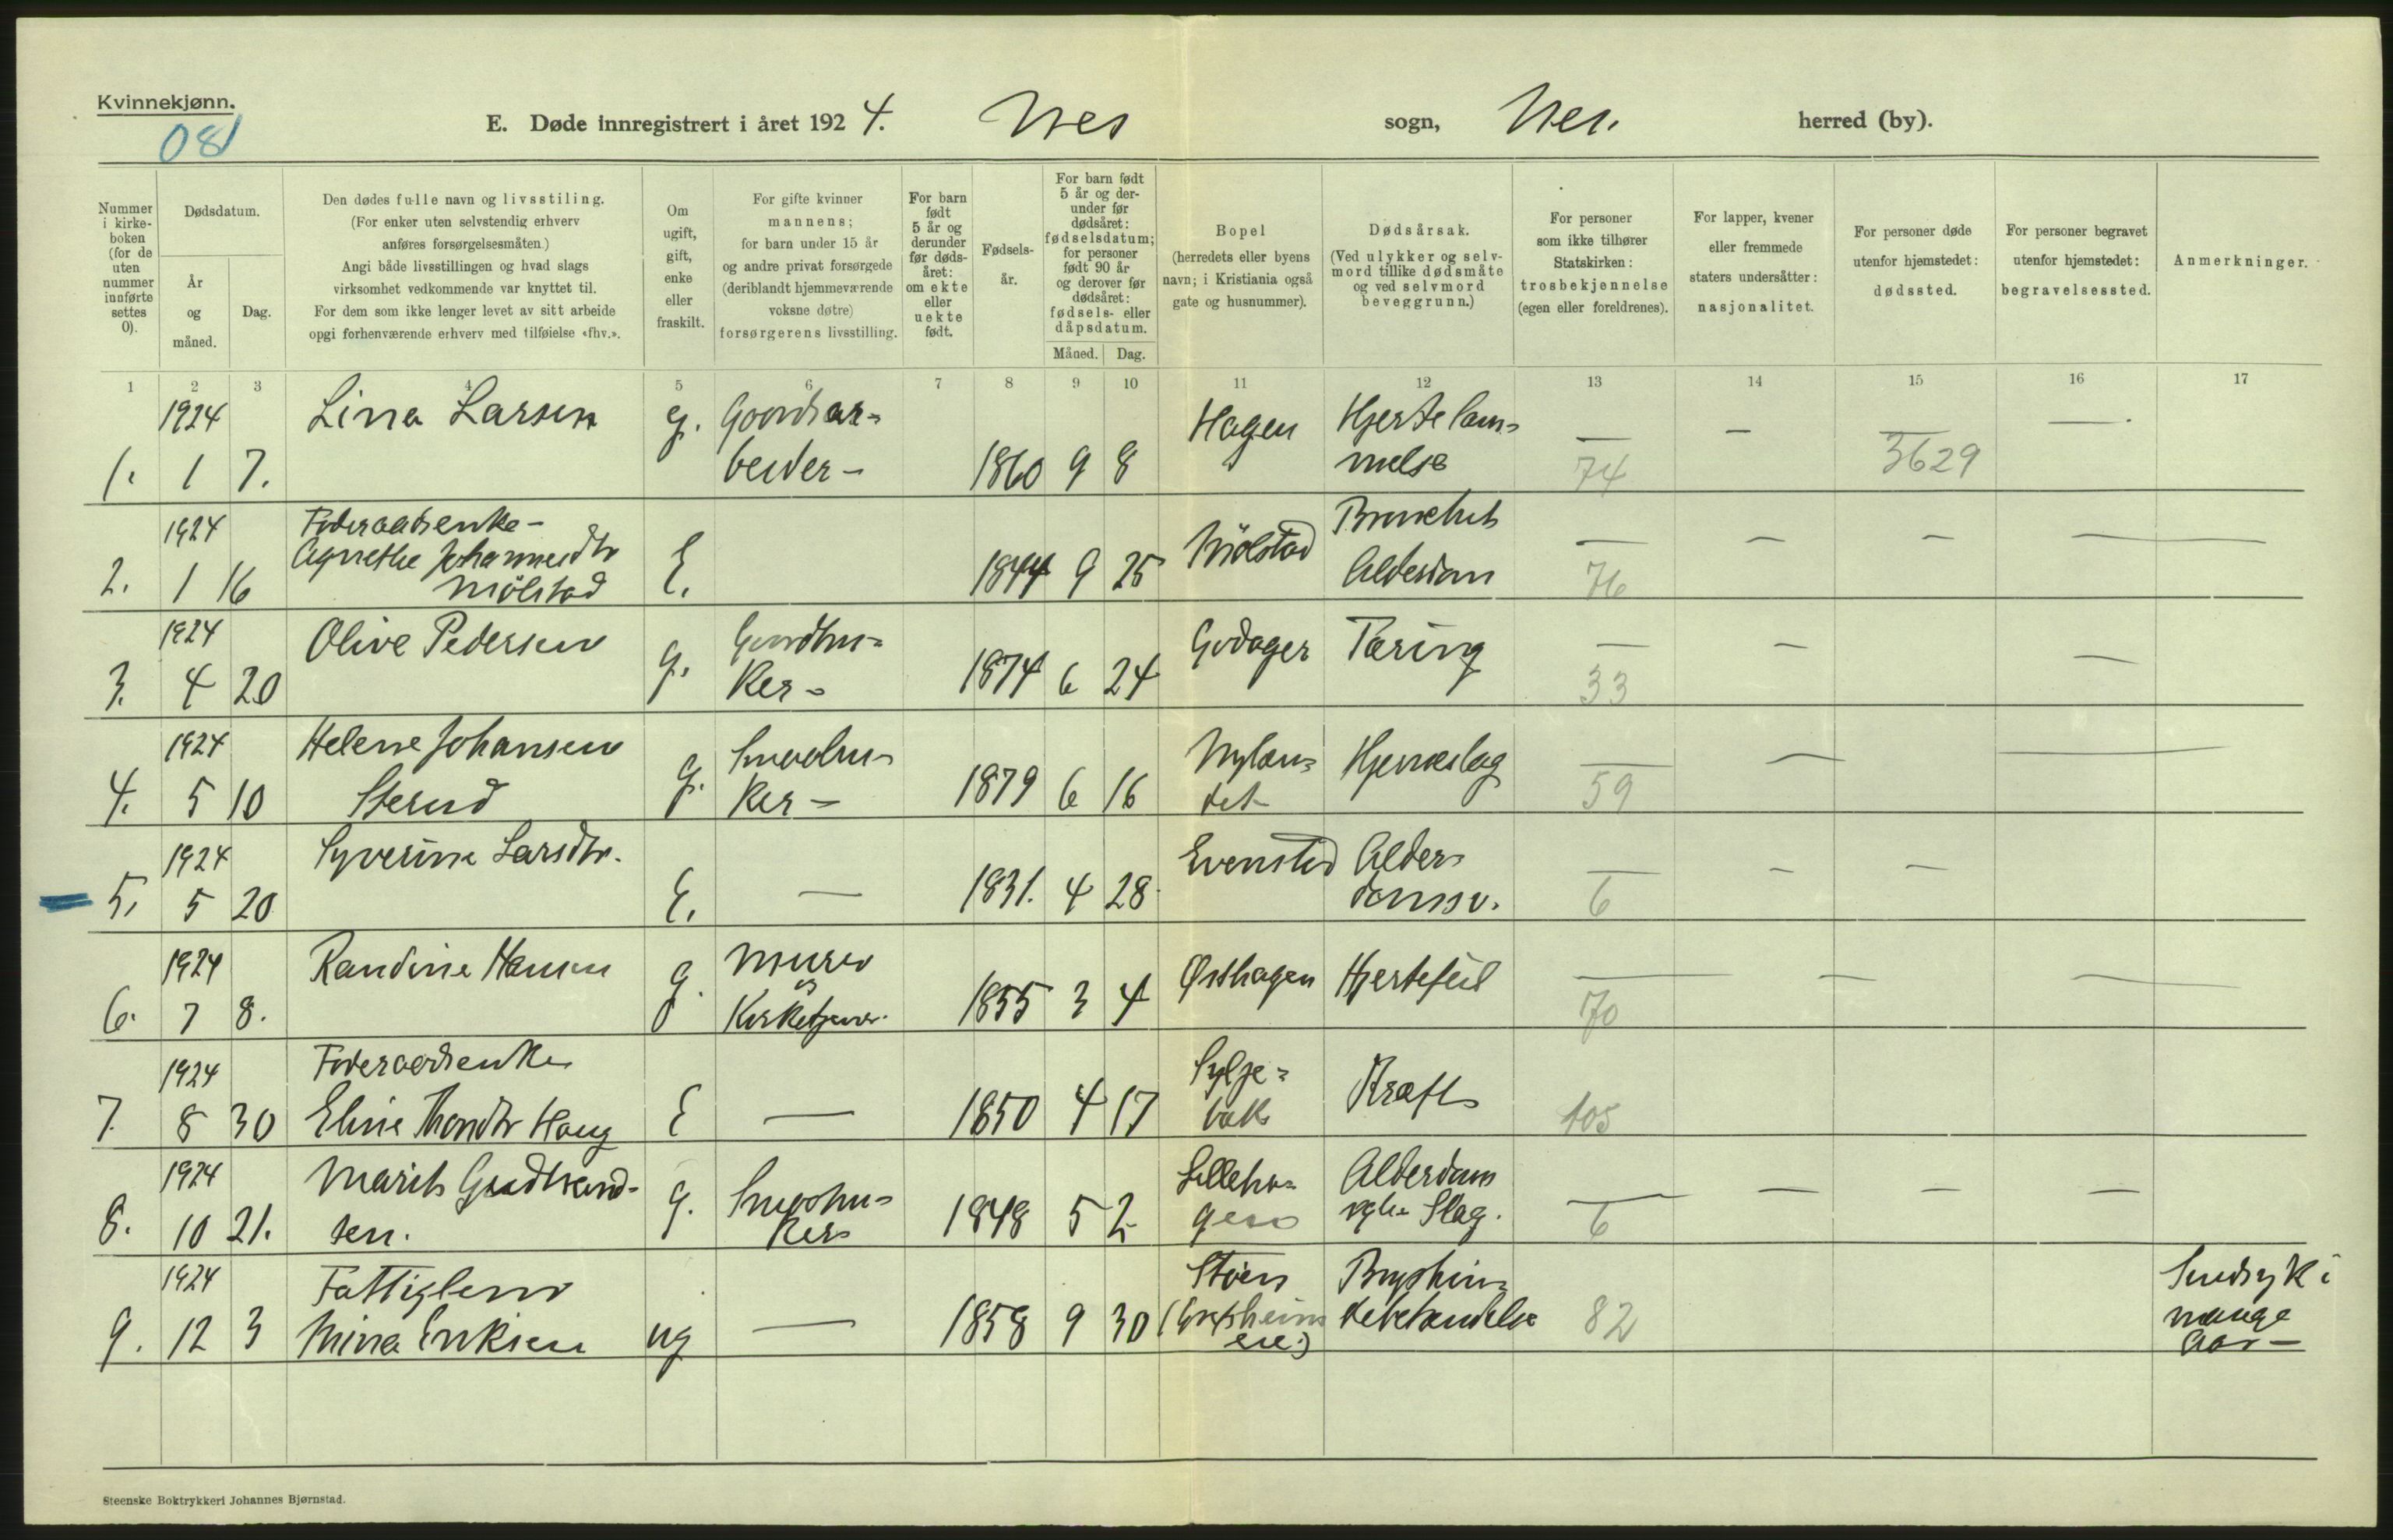 Kvinnekjønn.
081
E. Døde innregistrert i året 1924. Nes sogn, Nes. herred (by).
Nummer i kirkeboken (for de uten nummer innførte settes 0).
Dødsdatum.
År og måned.
Dag.
Den dødes fulle navn og livsstiling.
(For enker uten selvstendig erhverv
anføres forsørgelsesmåten.)
Angi både livsstillingen og hvad slags
virksomhet vedkommende var knyttet til.
For dem som ikke lenger levet av sitt arbeide
opgi forhenværende erhverv med tilføielse «fhv.».
Om ugift, gift, enke eller fraskilt.
For gifte kvinner
mannens;
for barn under 15 år
og andre privat forsørgede
(deriblandt hjemmeværende
voksne døtre)
forsørgerens livsstilling.
For barn født 5 år og derunder før dødsåret: om ekte eller uekte født.
Fødsels-
år.
For barn født 5 år og derunder før dødsåret: fødselsdatum; for personer født 90 år og derover før dødsåret: fødsels- eller dåpsdatum.
Måned. Dag.
Bopel
(herredets eller byens
navn; i Kristiania også
gate og husnummer).
Dødsårsak.
(Ved ulykker og selv-
mord tillike dødsmåte
og ved selvmord
beveggrunn.)
For personer
som ikke tilhører
Statskirken:
trosbekjennelse
(egen eller foreldrenes).
For lapper, kvener
eller fremmede
staters undersåtter:
nasjonalitet.
For personer døde
utenfor hjemstedet:
dødssted.
For personer begravet
utenfor hjemstedet:
begravelsessted.
Anmerkninger.
1 2 3 4 5 6 7 8 9 10 11 12 13 14 15 16 17
1924 Lina Larsen g. Goordsar- Hagen Hjertelam- — — — —
1. 1 7. beider - 1860 9 8 melse 74 3629
1924 Foderaadsenke - Bronchit
Agnethe Johannesdtr Mölstad — — — —
2. 1 16 Mölstad E. 1844 9 25 Alderdom 76
1924 Olive Pedersen g. Gaardbru- Godager Tæring — — —
3. 4 20 ker - 1874 6 24 33
1924 Helene Johansen g. Smaabru- Nylan- Hjerneslag — — —
4. 5 10 Sterud ker - 1879 6 16 det 59
1924 Syverine Larsdtr. Evenstad Alder- — — —
5. 5 20 E. — 1831. 4 28 domssv. 6
1924 Randine Hansen g. Murer Østhagen Hjertefeil — — —
6. 7 8. og Kirketjener. 1855 3 4 70
1924 Foderaadsenke Sylje- Kræft
7. 8 30 Eline Thordtr Haug E — 1850 4 17 bak 105
1924 Marit Gudbrand- g. Smaabru- Lilleha- Alderdom — — — —
8. 10 21. sen. ker 1848 5 2 gen og Slag. 6
1924 Fattiglem Stöen Bryshin- Sindsyk i
9. 12 3 Mina Eriksen ug — 1858 9 30 debetændelse 82 mange
Aar -
Steenske Boktrykkeri Johannes Bjørnstad.